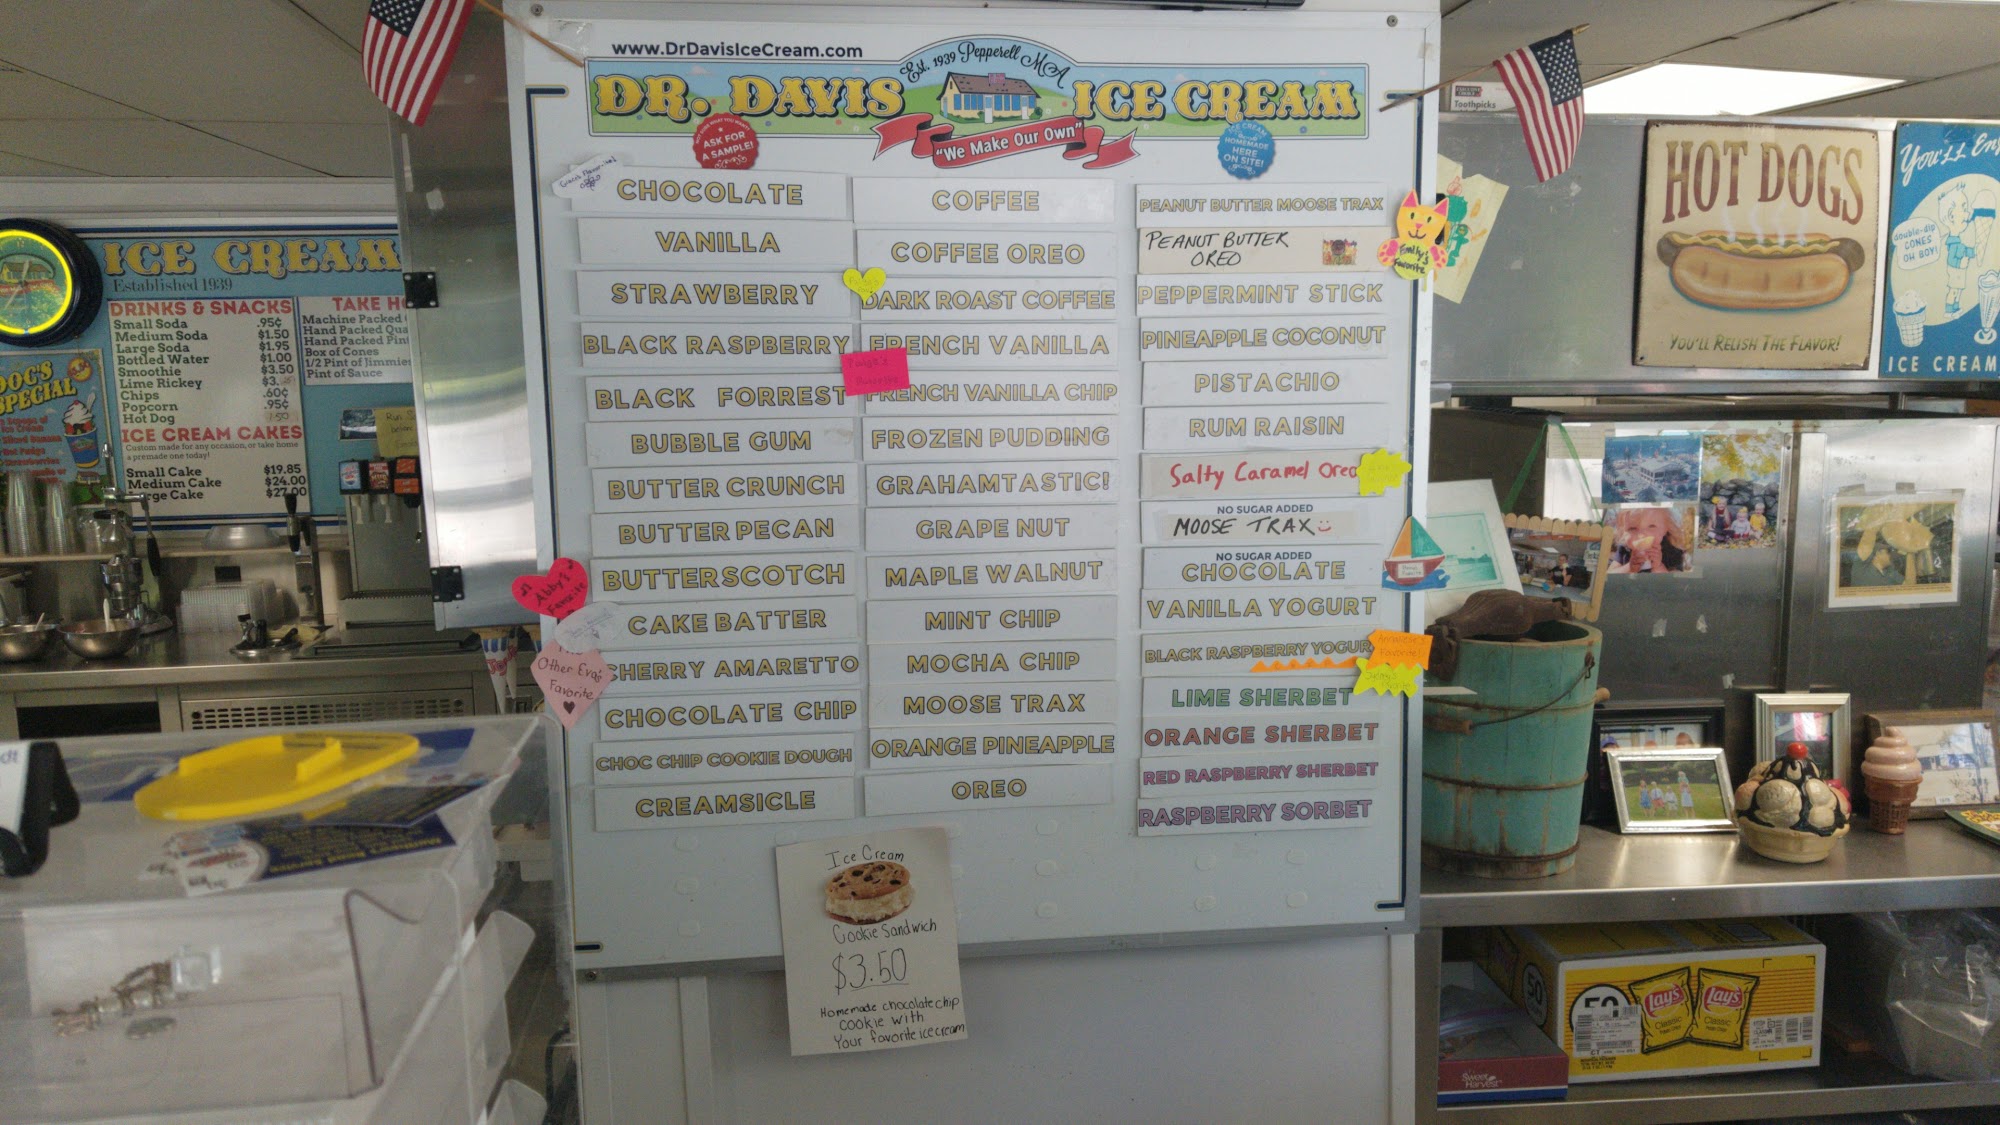 www.DrDavisIceCream.com
Est. 1939 Pepperell MA
DR. DAVIS ICE CREAM
"We Make Our Own"
ASK FOR
A SAMPLE!
ICE CREAM
HOMEMADE
HERE
ON SITE!
CHOCOLATE
VANILLA
STRAWBERRY
BLACK RASPBERRY
BLACK FORREST
BUBBLE GUM
BUTTER CRUNCH
BUTTER PECAN
BUTTERSCOTCH
CAKE BATTER
CHERRY AMARETTO
CHOCOLATE CHIP
CHOC CHIP COOKIE DOUGH
CREAMSICLE
Abby's
Favorite
Other Eva's
Favorite
COFFEE
COFFEE OREO
DARK ROAST COFFEE
FRENCH VANILLA
FRENCH VANILLA CHIP
FROZEN PUDDING
GRAHAMTASTIC!
GRAPE NUT
MAPLE WALNUT
MINT CHIP
MOCHA CHIP
MOOSE TRAX
ORANGE PINEAPPLE
OREO
Paige's
PEANUT BUTTER MOOSE TRAX
PEANUT BUTTER
OREO
PEPPERMINT STICK
PINEAPPLE COCONUT
PISTACHIO
RUM RAISIN
Salty Caramel Oreo
NO SUGAR ADDED
MOOSE TRAX
NO SUGAR ADDED
CHOCOLATE
VANILLA YOGURT
BLACK RASPBERRY YOGUR
LIME SHERBET
ORANGE SHERBET
RED RASPBERRY SHERBET
RASPBERRY SORBET
Emily's
Favorite
Favorite!
Ice Cream
Cookie Sandwich
$3.50
Homemade chocolate chip
cookie with
Your favorite ice cream
ICE CREAM
Established 1939
DRINKS & SNACKS
Small Soda .95¢
Medium Soda $1.50
Large Soda $1.95
Bottled Water $1.00
Smoothie $3.50
Lime Rickey $3.
Chips .60¢
Popcorn .95¢
Hot Dog
ICE CREAM CAKES
Custom made for any occasion, or take home
a premade one today!
Small Cake $19.85
Medium Cake $24.00
Large Cake $27.00
TAKE HO
Machine Packed
Hand Packed Qua
Hand Packed Pint
Box of Cones
1/2 Pint of Jimmies
Pint of Sauce
DOG'S
SPECIAL
Toothpicks
HOT DOGS
YOU'LL RELISH THE FLAVOR!
You'LL En
double-dip
CONES
OH BOY!
ICE CREAM
50
50
Lay's
Classic
Lay's
Classic
Sweet
Harvest